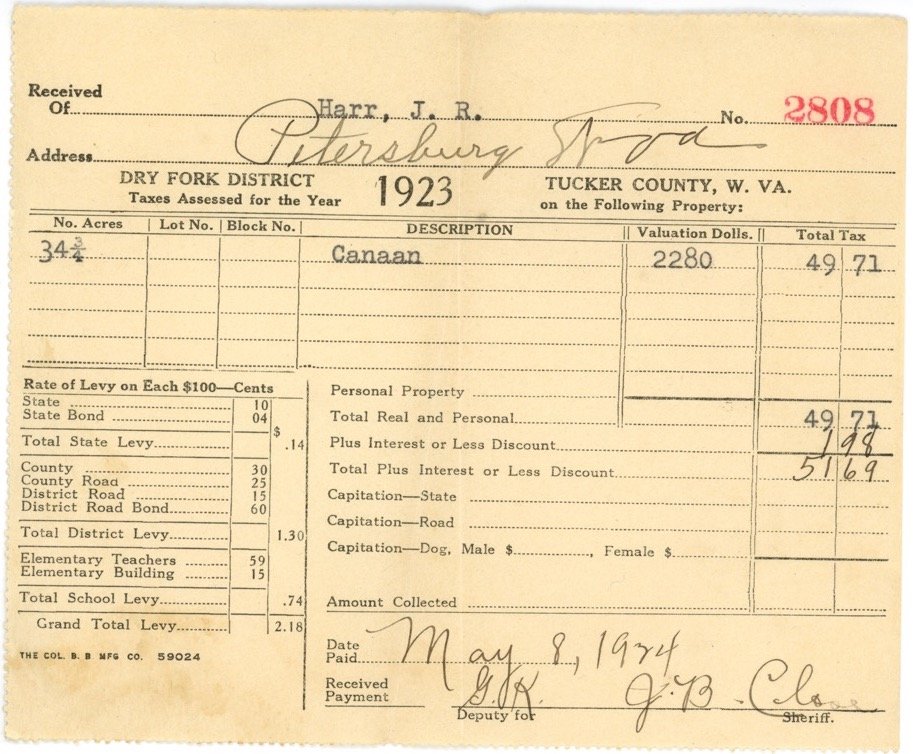 Received
Of Harr, J. R. No. 2808
Address Petersburg W va
DRY FORK DISTRICT 1923 TUCKER COUNTY, W. VA.
Taxes Assessed for the Year on the Following Property:
No. Acres Lot No. Block No. DESCRIPTION Valuation Dolls. Total Tax
34 3/4 Canaan 2280 49 71
Rate of Levy on Each $100—Cents
State 10
State Bond 04
Total State Levy $ .14
County 30
County Road 25
District Road 15
District Road Bond 60
Total District Levy 1.30
Elementary Teachers 59
Elementary Building 15
Total School Levy .74
Grand Total Levy 2.18
THE COL. B. B MFG CO. 59024
Personal Property
Total Real and Personal 49 71
Plus Interest or Less Discount 1 98
Total Plus Interest or Less Discount 51 69
Capitation—State
Capitation—Road
Capitation—Dog, Male $ , Female $
Amount Collected
Date
Paid May 8, 1924
Received
Payment G.K. J. B.
Deputy for Sheriff.